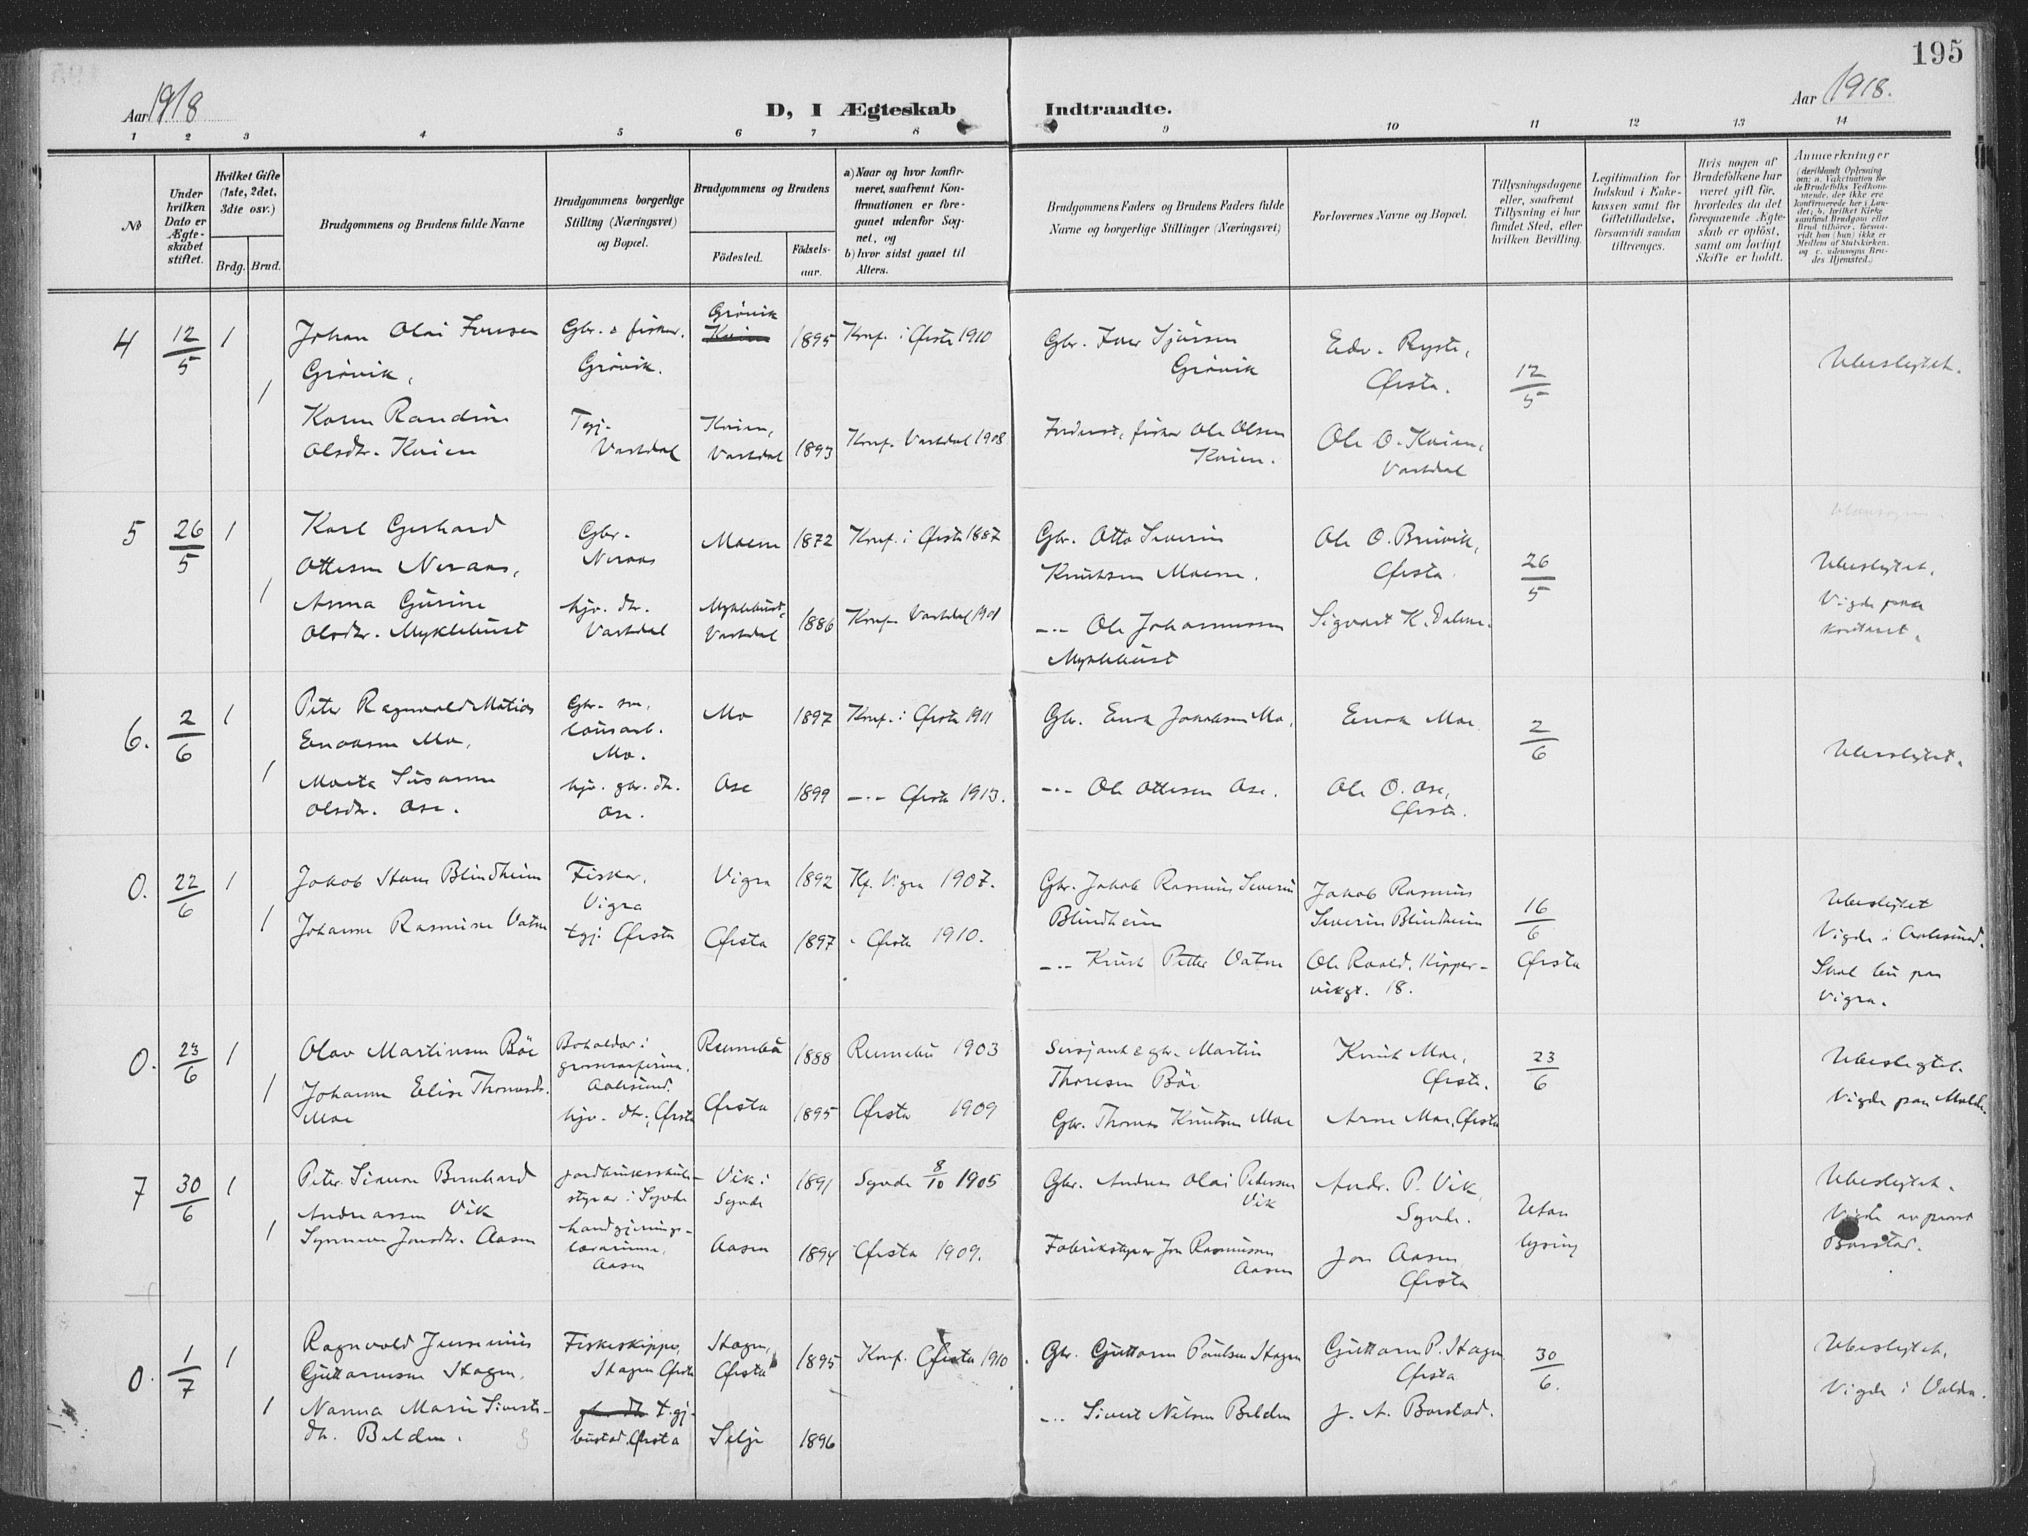 195
Aar 1918
D, I Ægteskab Indtraadte.
Aar 1918.
1 2 3 4 5 6 7 8 9 10 11 12 13 14
No
Under hvilken Dato er Ægteskabet stiftet.
Hvilket Gifte (1ste, 2det, 3die osv.)
Brdg. Brud.
Brudgommens og Brudens fulde Navne
Brudgommens borgerlige Stilling (Næringsvei) og Bopæl.
Brudgommens og Brudens
Fødested.
Fødselsaar.
a) Naar og hvor konfirmeret, saafremt Konfirmationen er foregaaet udenfor Sognet, og
b) hvor sidst gaaet til Alters.
Brudgommens Faders og Brudens Faders fulde Navne og borgerlige Stillinger (Næringsvei)
Forlovernes Navne og Bopæl.
Tillysningsdagene eller, saafremt Tillysning ei har fundet Sted, efter hvilken Bevilling.
Legitimation for Indskud i Enkekassen samt for Giftetilladelse, forsaavidt saadan tiltrænges.
Hvis nogen af Brudefolkene har været gift før, hvorledes da det foregaaende Ægteskab er opløst, samt om lovligt Skifte er holdt.
Anmærkninger
4 12/5 1
Johan Olai Iversen
Grövik,
Gbr. & fisker.
Grövik.
Grövik
1895
Konf. i Ørsta 1910
Gbr. Iver Sjürsen
Grövik
Edv. Ryste,
Ørsta.
12/5
Ubeslegtet.
1
Karen Randine
Olsdtr. Kvien
Tgj.
Vartdal
Kvien,
Vartdal
1893
Konf. Vartdal 1908
fisker Ole Olsen
Kvien.
Ole O. Kvien,
Vartdal
5 26/5 1
Karl Gerhard
Ottesen Neraas,
Gbr.
Neraas
Moene
1872
Konf. i Ørsta 1887
Gbr. Otto Severin
Knutsen Moene.
Ole O. Brüvik,
Ørsta.
26/5
Ubeslegtet.
Vigde paa
kontoret.
1
Anna Gürine
Olsdtr. Myklebüst
hjv. dtr.
Vartdal
Myklebüst,
Vartdal
1886
Konf. Vartdal 1901
-"- Ole Johannessen
Myklebüst
Sigvart K. Dalene.
6. 2/6 1
Peter Ragnvald Matias
Enoksen Mo,
Gbr. søn,
Mo.
Mo
1897
Konf. i Ørsta 1911
Gbr. Enok Jakobsen Mo,
Enok Moe
2/6
Ubeslegtet.
1
Marta Süsanne
Olsdtr. Ose.
hjv. gbr. dtr.
Ose.
Ose
1899
-"- Ørsta 1913.
-"- Ole Ottesen Ose.
Ole O. Ose,
Ørsta.
0. 22/6 1
Jakob Hans Blindheim
Fiskar,
Vigra
Vigra
1892
Kf. Vigra 1907.
Gbr. Jakob Rasmus Severin
Blindheim
Jakob Rasmus
Severin Blindheim
16/6
Ørsta
Ubeslegtet
Vigde i Aalesund.
Skal bu paa
Vigra.
1
Johanne Rasmine Vatne
tgj. Ørsta
Ørsta
1897
" Ørsta 1910.
-"- Knut Petter Vatne
Ole Roald, Kipper-
vikgt. 18.
0. 23/6 1
Olav Martinsen Böe
Bokhaldar i
grossererfirma,
Aalesund.
Rennebü
1888
Rennebü 1903
Sersjant & gbr. Martin
Thoresen Böe
Knut Moe,
Ørsta.
23/6
Ubeslegtet.
Vigde paa Molde.
1
Johanne Elise Thomasdtr.
Moe
hjv. dtr., Ørsta
Ørsta
1895
Ørsta 1909
Gbr. Thomas Knutsen Moe
Arne Moe, Ørsta
7 30/6 1
Peter Simon Bernhard
Andreassen Vik
jordbruksskule-
styrar i Syvde
Vik i
Syvde
1891
Syvde 8/10 1905
Gbr. Andreas Olai Pedersen
Vik
Andr. P. Vik,
Syvde.
Utan
lysing
Ubeslegtet.
Vigde av prost
Barstad.
1
Synneve Jonsdtr. Aasen
handgjernings-
lærarinne,
Aasen
Aasen
1894
Ørsta 1909.
Fabrikstyrar Jon Rasmussen
Aasen
Jon Aasen,
Ørsta
0. 1/7 1
Ragnvald Jensenius
Güttormsen Hagen,
Fiskeskipper,
Hagen Ørsta
Hagen,
Ørsta
1895
Konf. Ørsta 1910
Gbr. Güttorm Paülsen Hagen
Güttorm P. Hagen
Ørsta
30/6.
Ubeslegtet.
Vigde i Volda.
1
Nanna Marie Siverts-
dtr. Belden.
t.gj.
bustad Ørsta
Selje
1896
-"- Sivert Nilsen Belden
J. A. Barstad.